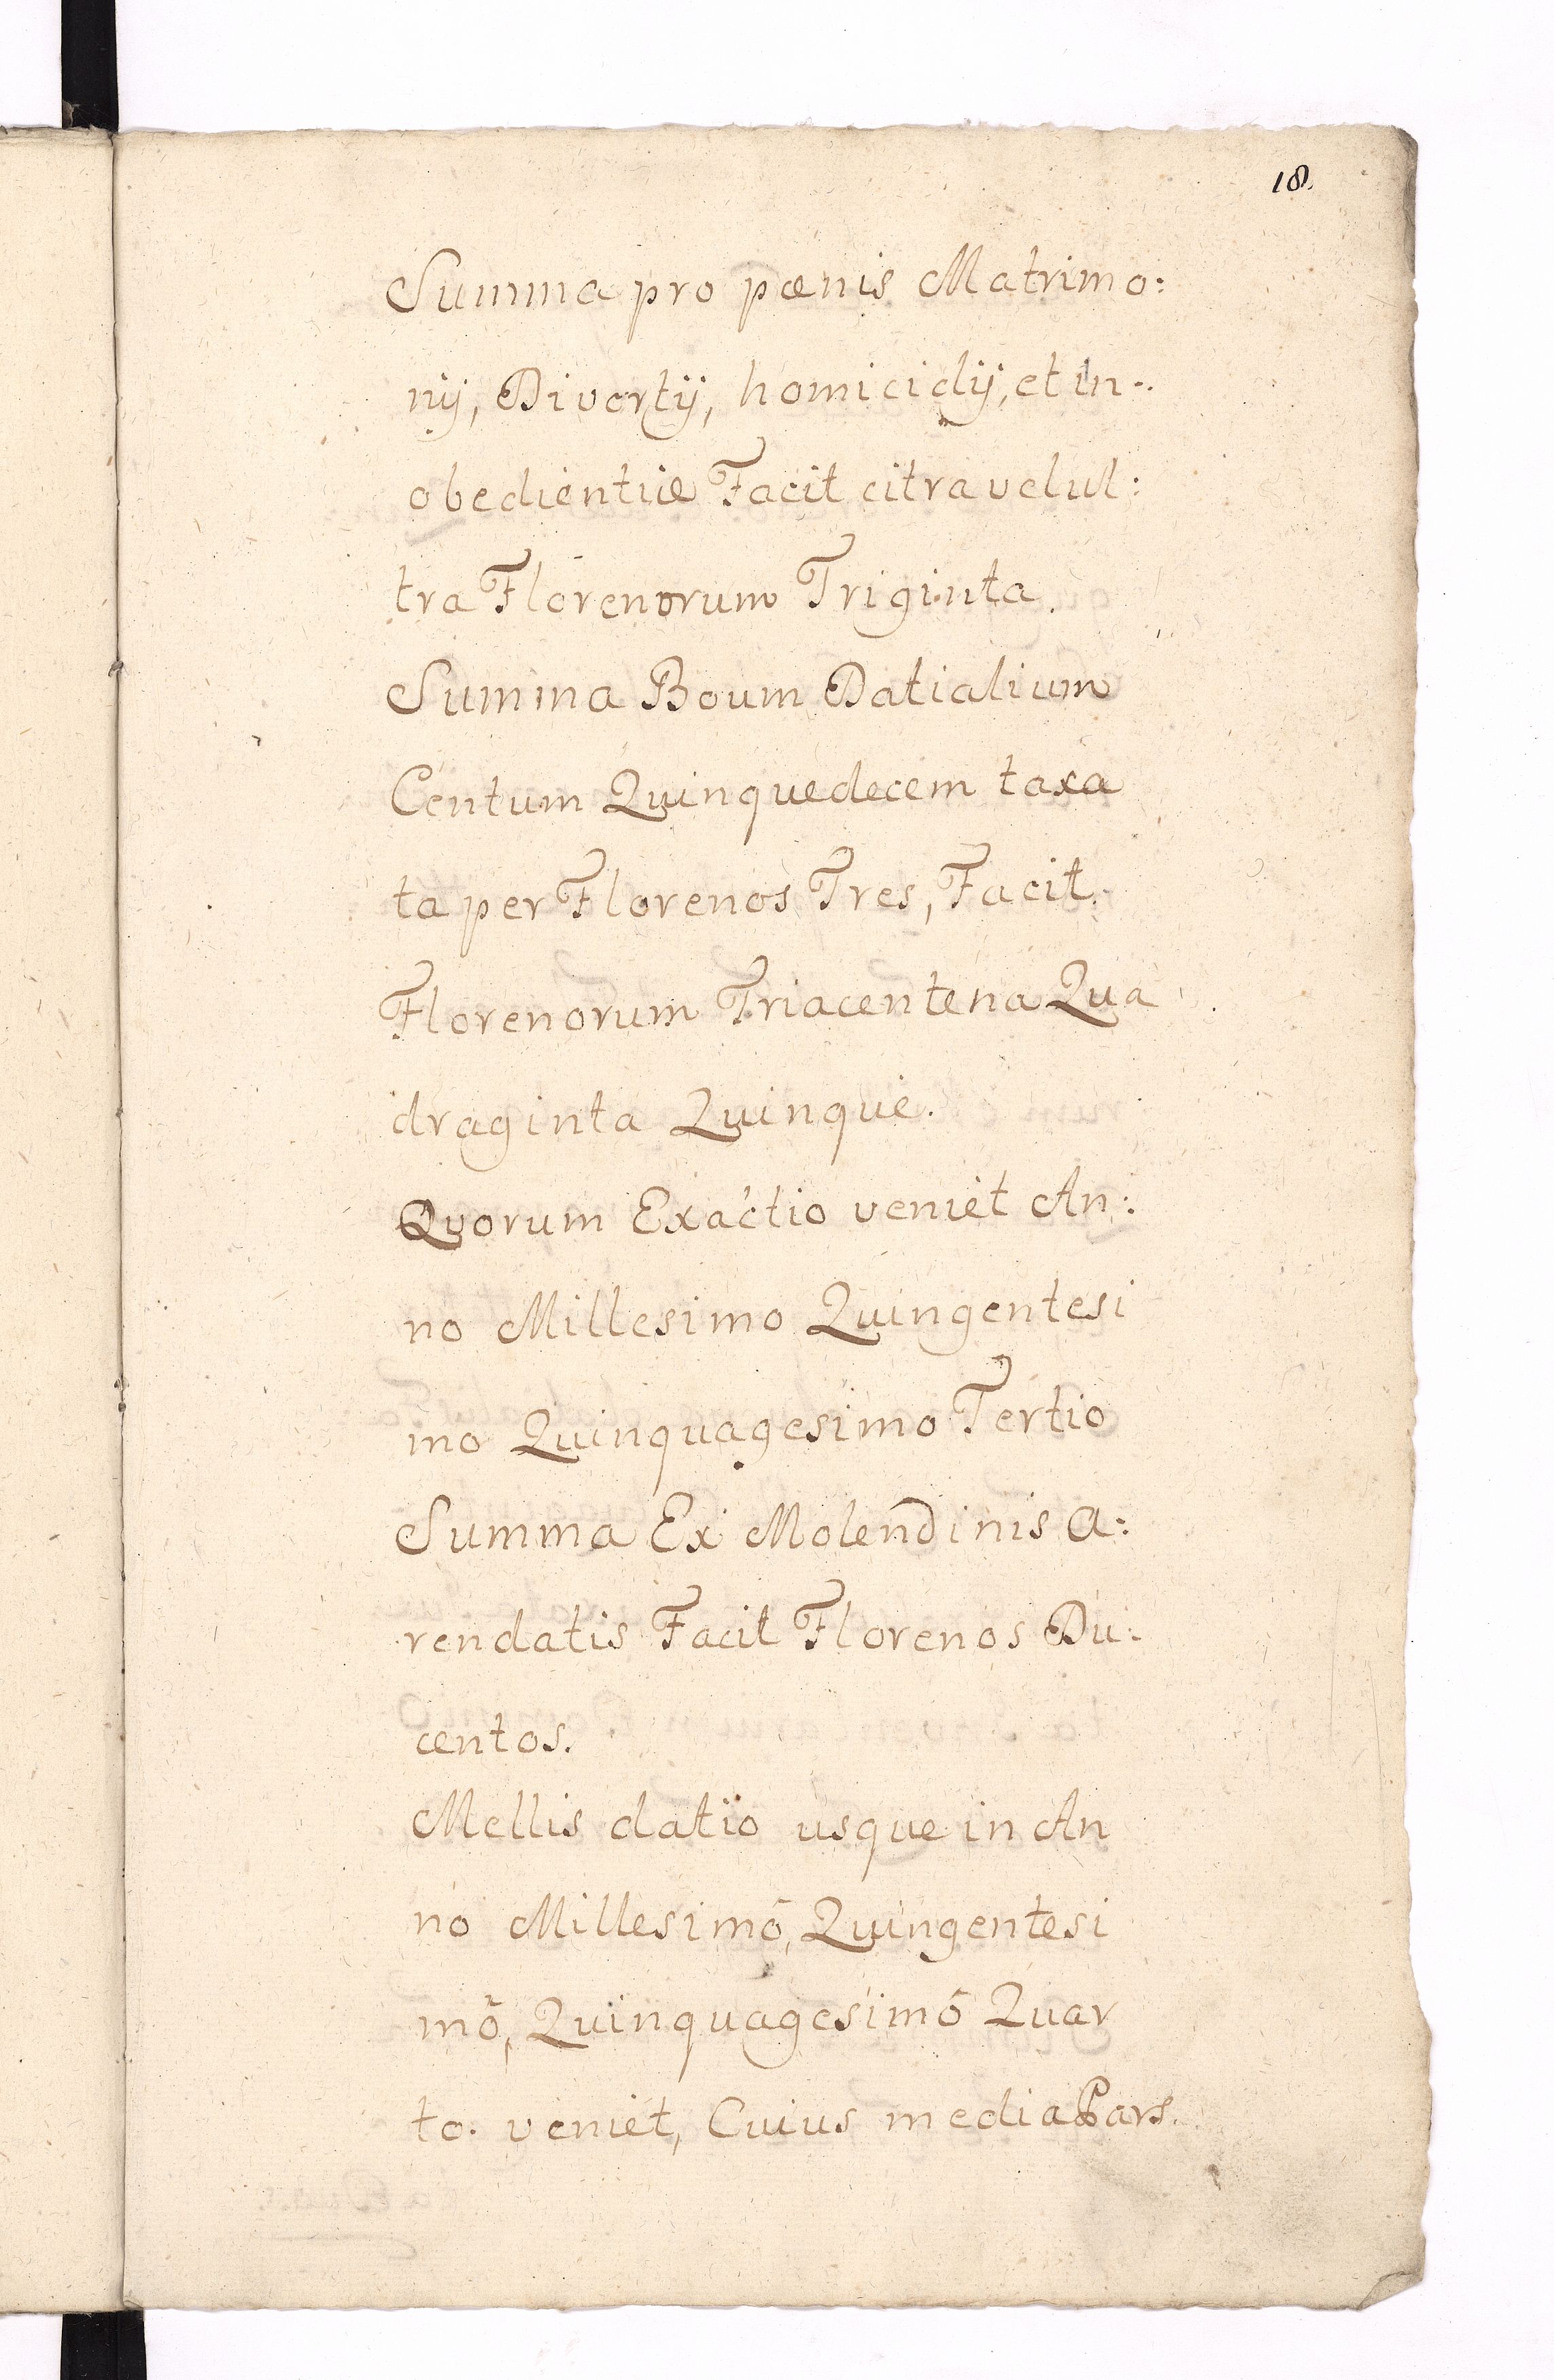 18.
Summa pro pœnis Matrimo:
nij, Divortij, homicidij, et in:
obedientiæ Facit citra vel ul:
tra Florenorum Triginta.
Summa Boum Datialium
Centum Quinquedecem taxa
ta per Florenos Tres, Facit.
Florenorum Triacentena Qua
draginta Quinque.
Quorum Exactio veniet An:
no Millesimo Quingentesi
mo Quinquagesimo Tertio
Summa Ex Molendinis A:
rendatis Facit Florenos Du:
centos.
Mellis datio usque in An
no Millesimō, Quingentesi
mō, Quinquagesimō Quar
to. veniet, Cuius media Pars.